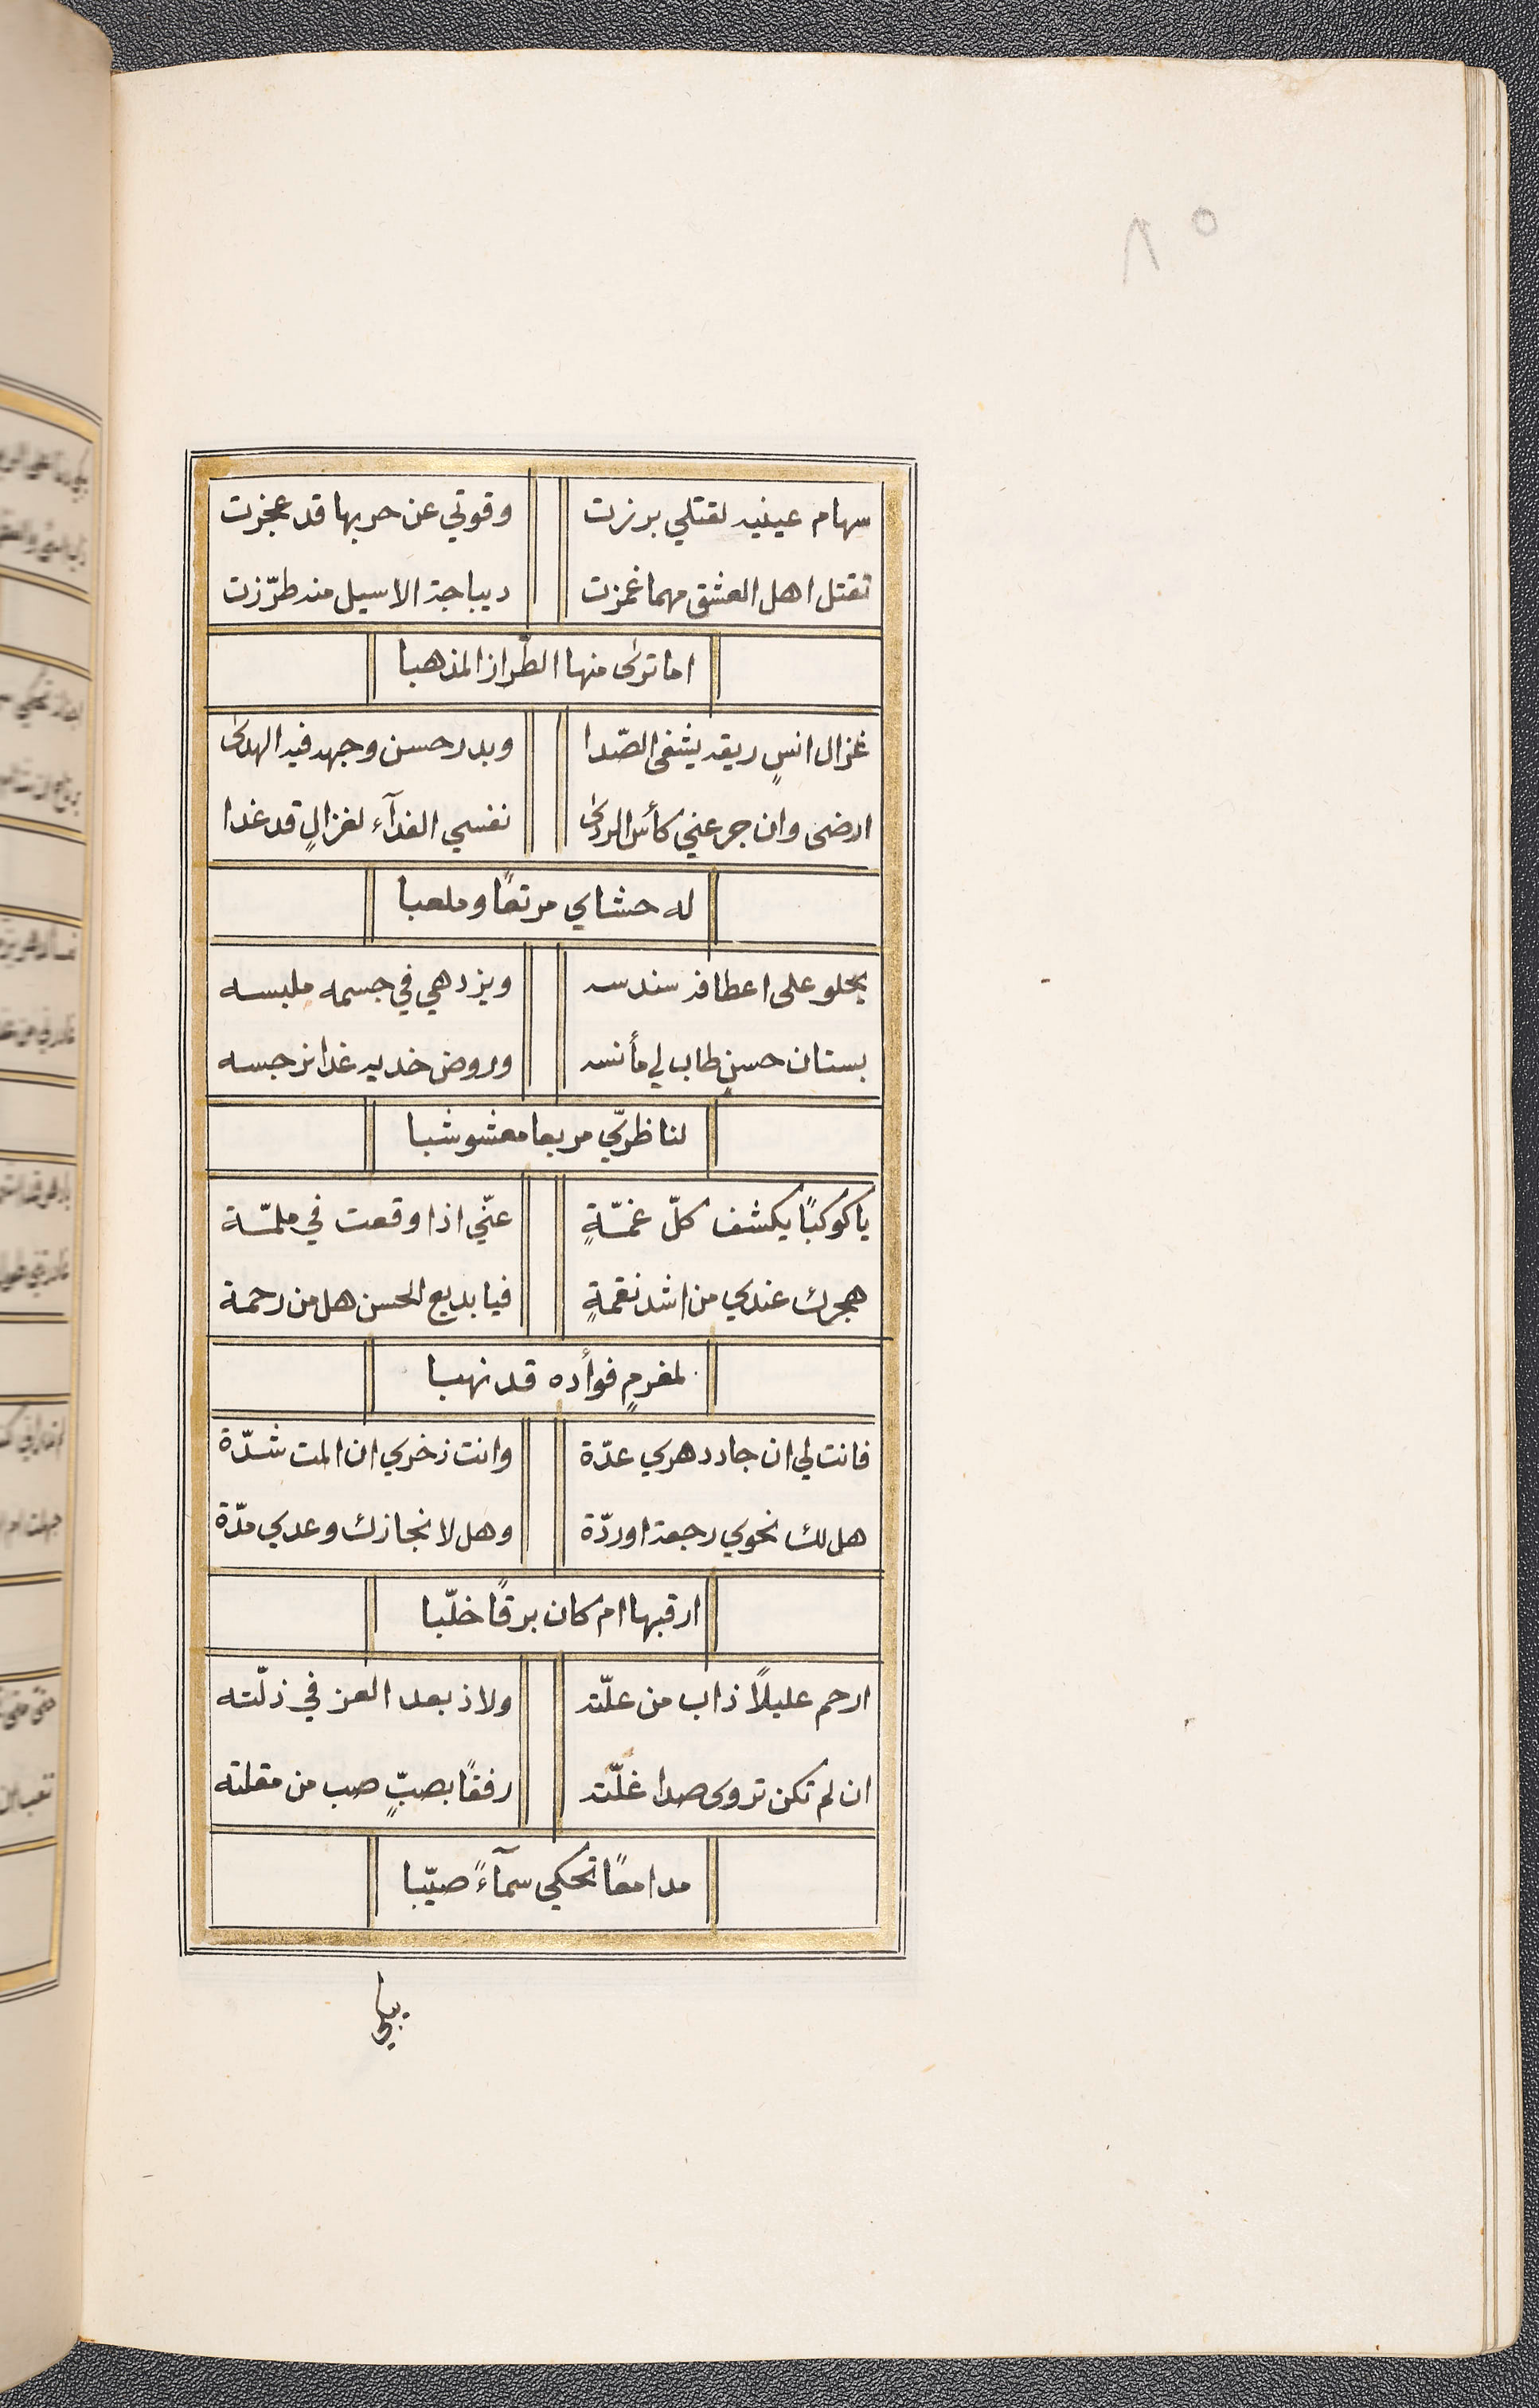 ٨٥
سهام عينيه لقتلي برزت وقوتي عن حربها قد عجزت
تقتل اهل العشق مهما غمزت ديباجة الاسيل منه طرّزت
اما ترى منها الطّراز المذهبا
غزال انسٍ ريقه يشفى الصّدا وبدر حسن وجهه فيه الهدى
ارضى وان جرعني كأس الردى نفسي الفدآء لغزالٍ قد غدا
له حشاي مرتعًا وملعبا
يحلو على اعطافه سندسه ويزدهي في جسمه ملبسه
بستان حسنٍ طاب لي مأنسه وروض خديه غدا نرجسه
لناظريّ مربعا معشوشبا
يا كوكبًا يكشف كلّ غمّةٍ عنّي اذا وقعت في ملمّة
هجرك عندي من اشد نقمةٍ فيا بديع الحسن هل من رحمة
لمغرمٍ فوأده قد نهبا
فانت لي ان جاد دهري عدّة وانت ذخري ان المت شدّة
هل لك نحوي رجعة اوردّة وهل لانجازك وعدي مدّة
ارقبها ام كان برقًا خلّبا
ارحم عليلاً ذاب من علّته ولاذ بعد العز في ذلّته
ان لم تكن تروى صدا غلّته رفقًا بصبٍّ صب من مقلته
مدامعًا تحكي سمآءً صيّبا